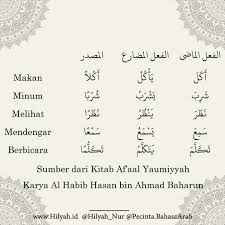 الفعل الماضى الفعل المضارع المصدر
Makan أَكَلَ يَأْكُلُ أَكْلاً
Minum شَرِبَ يَشْرَبُ شُرْبًا
Melihat نَظَرَ يَنْظُرُ نَظَرًا
Mendengar سَمِعَ يَسْمَعُ سَمْعًا
Berbicara تَكَلَّمَ يَتَكَلَّمُ تَكَلُّمًا
Sumber dari Kitab Af'aal Yaumiyyah
Karya Al Habib Hasan bin Ahmad Baharun
www.Hilyah.id @Hilyah_Nur @Pecinta.BahasaArab